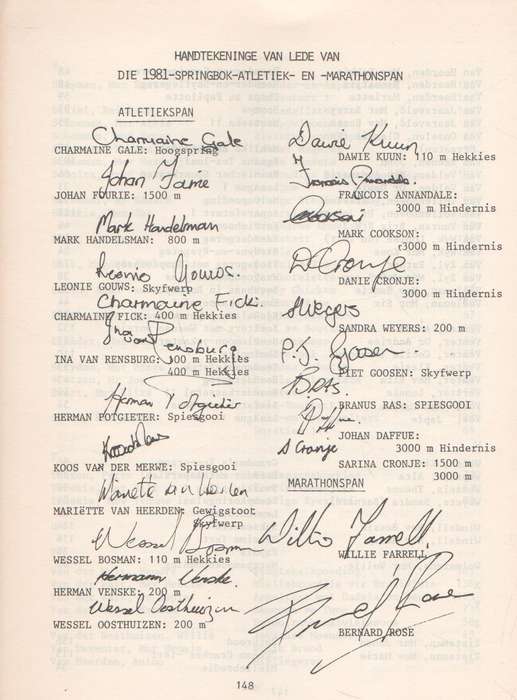 HANDTEKENINGE VAN LEDE VAN
DIE 1981-SPRINGBOK-ATLETIEK- EN -MARATHONSPAN
ATLETIEKSPAN
Charmaine Gale
CHARMAINE GALE: Hoogspring
Johan Fourie
JOHAN FOURIE: 1500 m
Mark Handelsman
MARK HANDELSMAN: 800 m
Leonie Gouws.
LEONIE GOUWS: Skyfwerp
Charmaine Fick.
CHARMAINE FICK: 400 m Hekkies
Ina van Rensburg
INA VAN RENSBURG: 100 m Hekkies
400 m Hekkies
Herman Potgieter
HERMAN POTGIETER: Spiesgooi
KOOS VAN DER MERWE: Spiesgooi
Mariëtte van Heerden
MARIËTTE VAN HEERDEN: Gewigstoot
Skyfwerp
Wessel Bosman
WESSEL BOSMAN: 110 m Hekkies
Hermann Venske.
HERMAN VENSKE: 200 m
Wessel Oosthuizen
WESSEL OOSTHUIZEN: 200 m
Dawie Kuun
DAWIE KUUN: 110 m Hekkies
Francois Annandale.
FRANCOIS ANNANDALE:
3000 m Hindernis
Cookson
MARK COOKSON:
3000 m Hindernis
D Cronje
DANIE CRONJE:
3000 m Hindernis
SWeyers
SANDRA WEYERS: 200 m
P.J. Goosen.
PIET GOOSEN: Skyfwerp
B Ras.
BRANUS RAS: SPIESGOOI
JOHAN DAFFUE:
3000 m Hindernis
S Cronje
SARINA CRONJE: 1500 m
3000 m
MARATHONSPAN
Willie Farrell.
WILLIE FARRELL
Bernard Rose
BERNARD ROSE
148